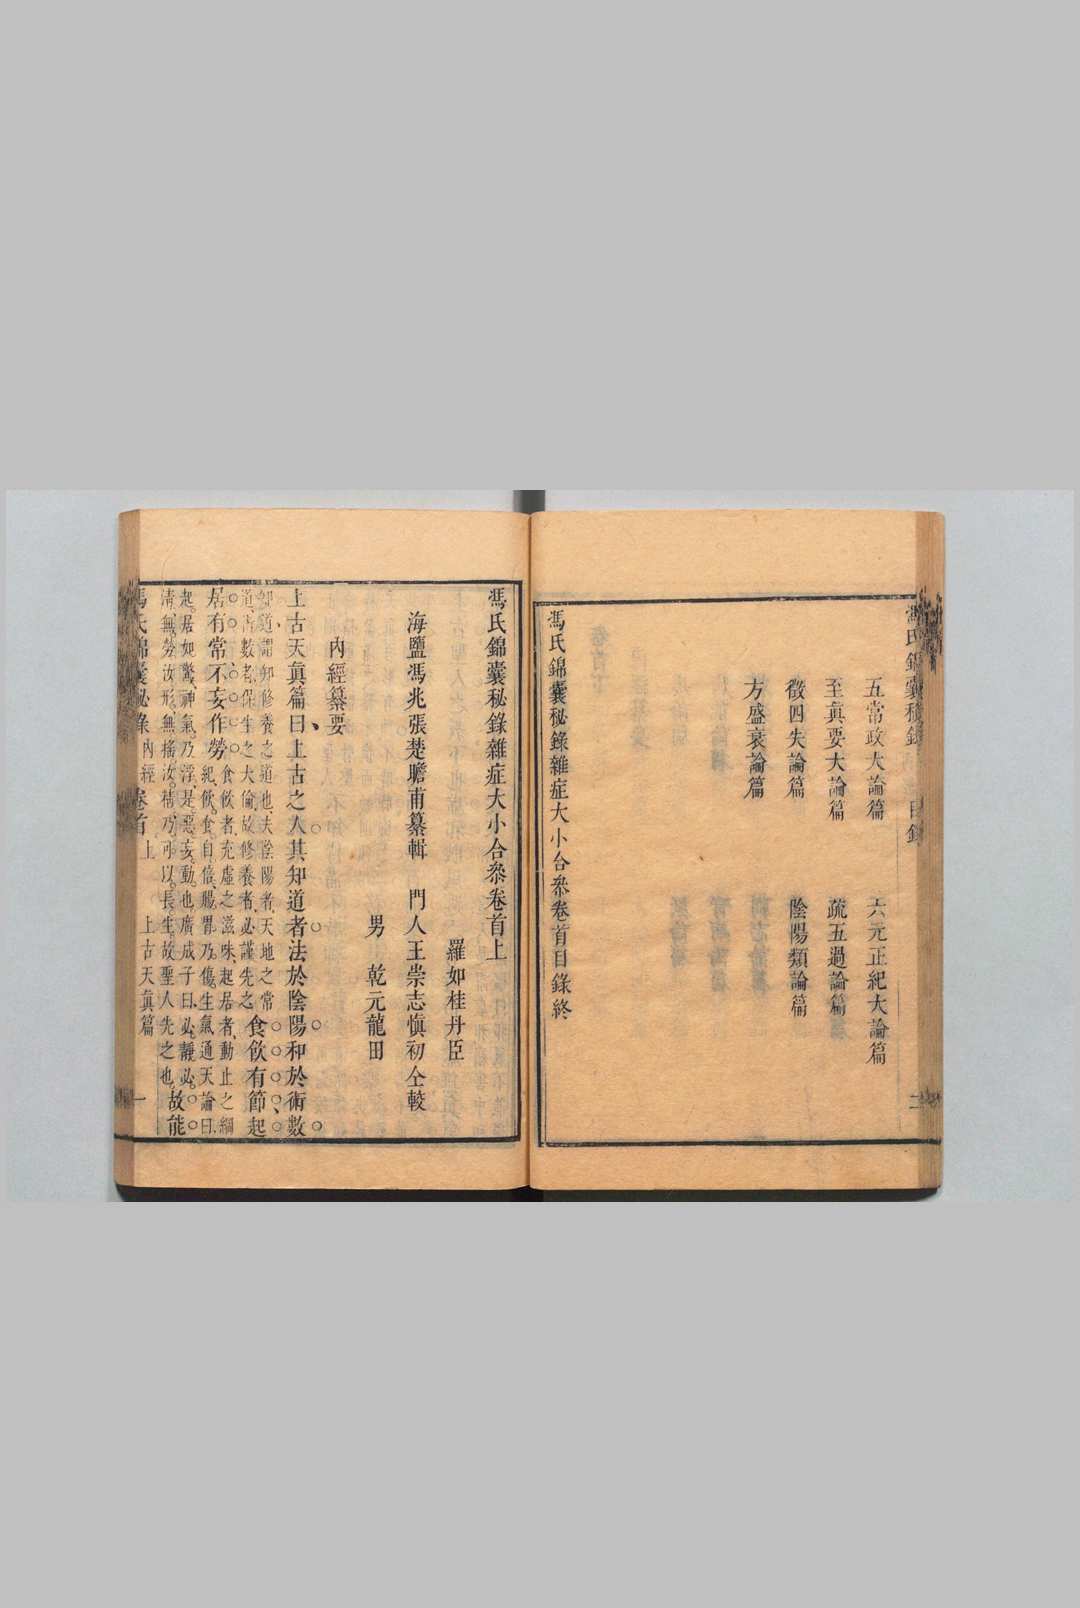 五常政大論篇 六元正紀大論篇
至眞要大論篇 疏五過論篇
徵四失論篇 陰陽類論篇
方盛衰論篇
馮氏錦囊秘錄雜症大小合叅卷首目錄終
馮氏錦囊秘錄雜症大小合叅卷首上
羅如桂丹臣
海鹽馮兆張楚瞻甫纂輯 門人王崇志愼初仝較
男 乾元龍田
內經纂要
上古天眞篇曰上古之人其知道者法於陰陽和於術數
知道謂知修養之道也夫陰陽者天地之常
道術數者保生之大倫故修養者必謹先之
食飲有節起
居有常不妄作勞
食飲者充虛之滋味起居者動止之綱
紀飲食自倍腸胃乃傷生氣通天論曰
起居如驚神氣乃浮是惡妄動也廣成子曰必靜必
淸無勞汝形無搖汝精乃可以長生故聖人先之也
故能
馮氏錦囊秘錄 內經卷首上 上古天眞篇 一